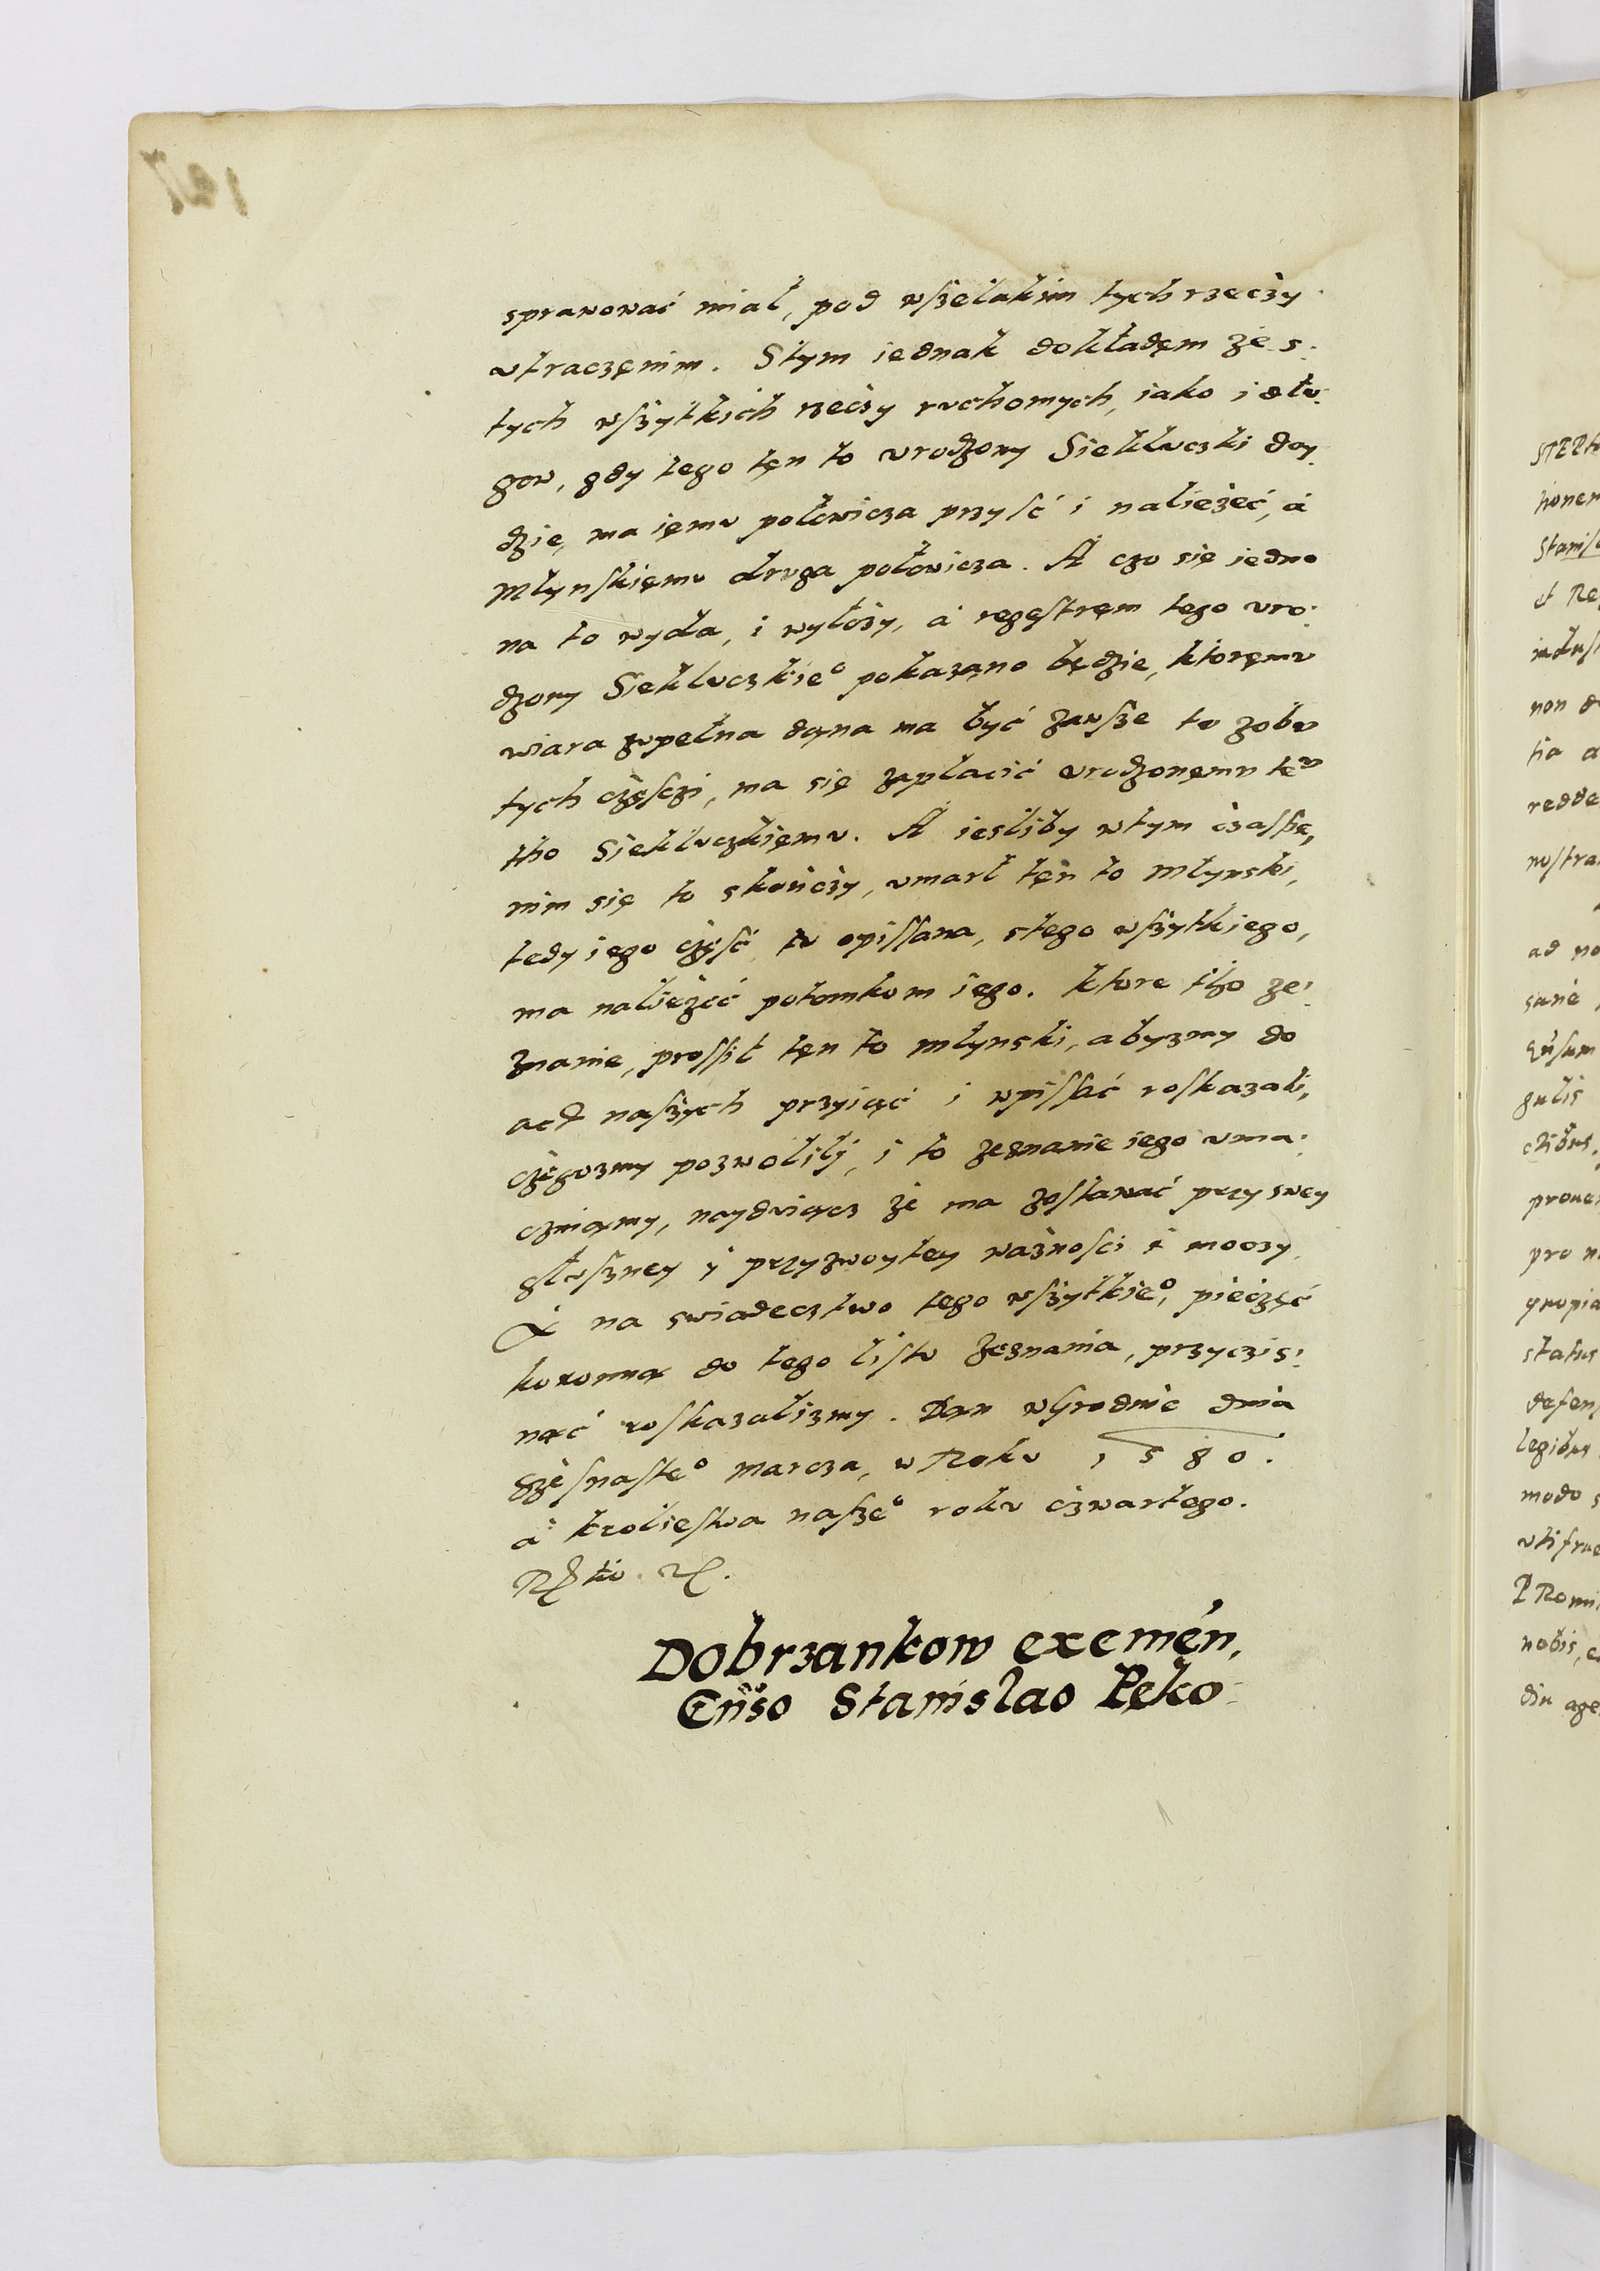 sprawować miał, pod wszelakim tych rzeczy
vtraczęnim. Stym iednak dokładęm że s:
tych wszytkich rzeczy ruchomych, iako i dłu:
gow, gdy tego tęn to vrodzony Siekluczki doy
dzie, ma ięmu połowicza przyść i należeć, á
Młynskięmu druga połowicza. A czo się iedno
na to wyda, i wyłoży, á regęstręm tego vro:
dzony Siekluczkie° pokazano będzie, ktoręmu
wiara zupełna dąna ma być zawsze to zobu
tych częśczi, ma się zapłacić vrodzonęmu teᵐ
tho Siekluczkięmu. A iesliby wtym czasse,
nim się to skończy, vmarł tęn to Młynski,
tedy iego część tu opissana, stego wszytkiego,
ma należeć potomkom iego. ktore tho ze:
znanie, prossił tęn to młynski, abyzmy do
act naszych przyiąć i wpissać roskazali,
czegozmy pozwolili, i to zeznanie iego vma:
czniamy, naydviącz że ma zostawać przy swey
słuszney y przyzwoytey ważności i moczy
A na swiadecztwo tego wszytkie°, pieczęć
koronna do tego listu zeznania, przyczis:
nąć roskazalizmy. Dan wGrodnie dnia
szesnaste° marcza, w Roku 1580.
á kroliestwa nasze° roku czwartego.
Dobrzankow exemen,
Enso Stanislao Pęko
STEPH
tionem
Stanisl
et Re
indust
non d
tia a
redde
nostra
ad no
gulis
ctibus,
proue
pro n
propia
status
defen
legibus
modo s
vtifrue
nobis, e
diu age